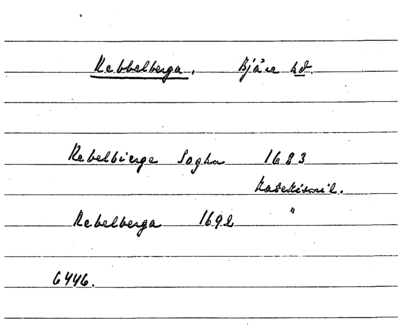 Rebbelberga, Bjäre hd.
Rebelbierge Soghn 1683
Katekismil.
Rebelberga 1692 "
6446.